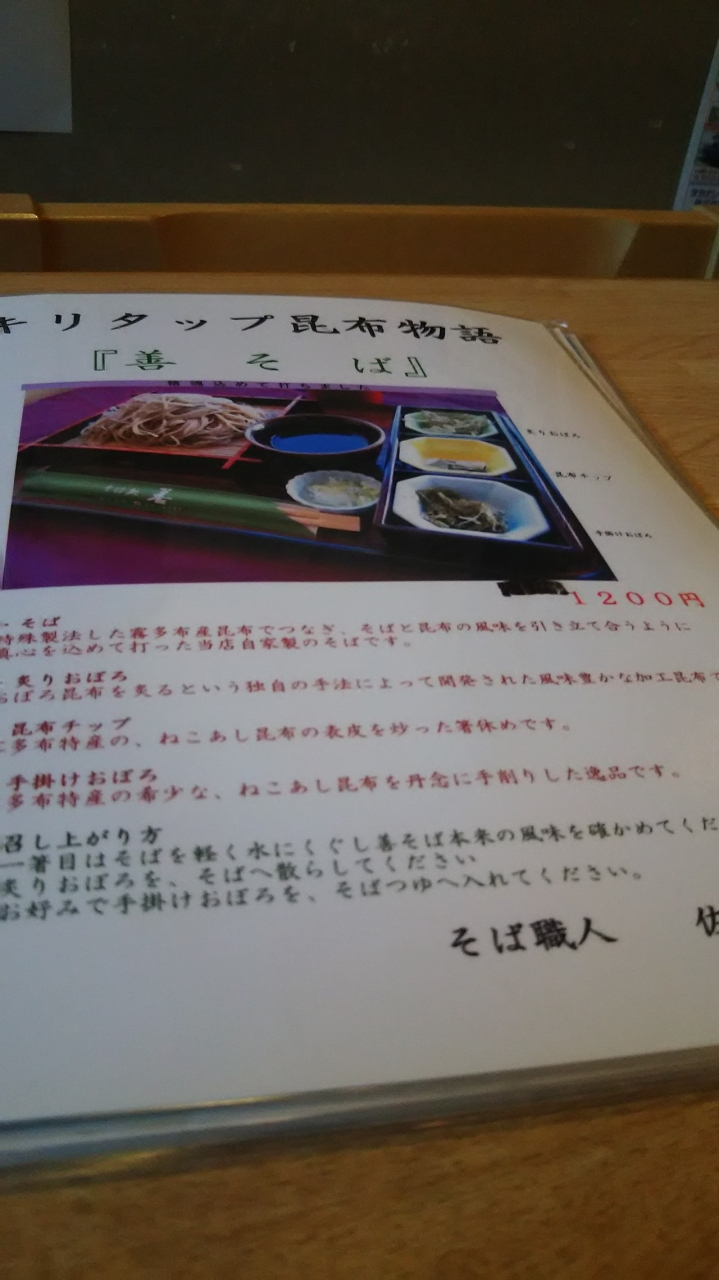 キリタップ昆布物語
『善 そ ば』
精魂込めて打ちました
炙りおぼろ
昆布チップ
手掛けおぼろ
善
1200円
・そば
特殊製法した霧多布産昆布でつなぎ、そばと昆布の風味を引き立て合うように
真心を込めて打った当店自家製のそばです。
炙りおぼろ
おぼろ昆布を炙るという独自の手法によって開発された風味豊かな加工昆布で
昆布チップ
多布特産の、ねこあし昆布の表皮を炒った箸休めです。
手掛けおぼろ
多布特産の希少な、ねこあし昆布を丹念に手削りした逸品です。
召し上がり方
一箸目はそばを軽く水にくぐし善そば本来の風味を確かめてくだ
炙りおぼろを、そばへ散らしてください
お好みで手掛けおぼろを、そばつゆへ入れてください。
そば職人 佐